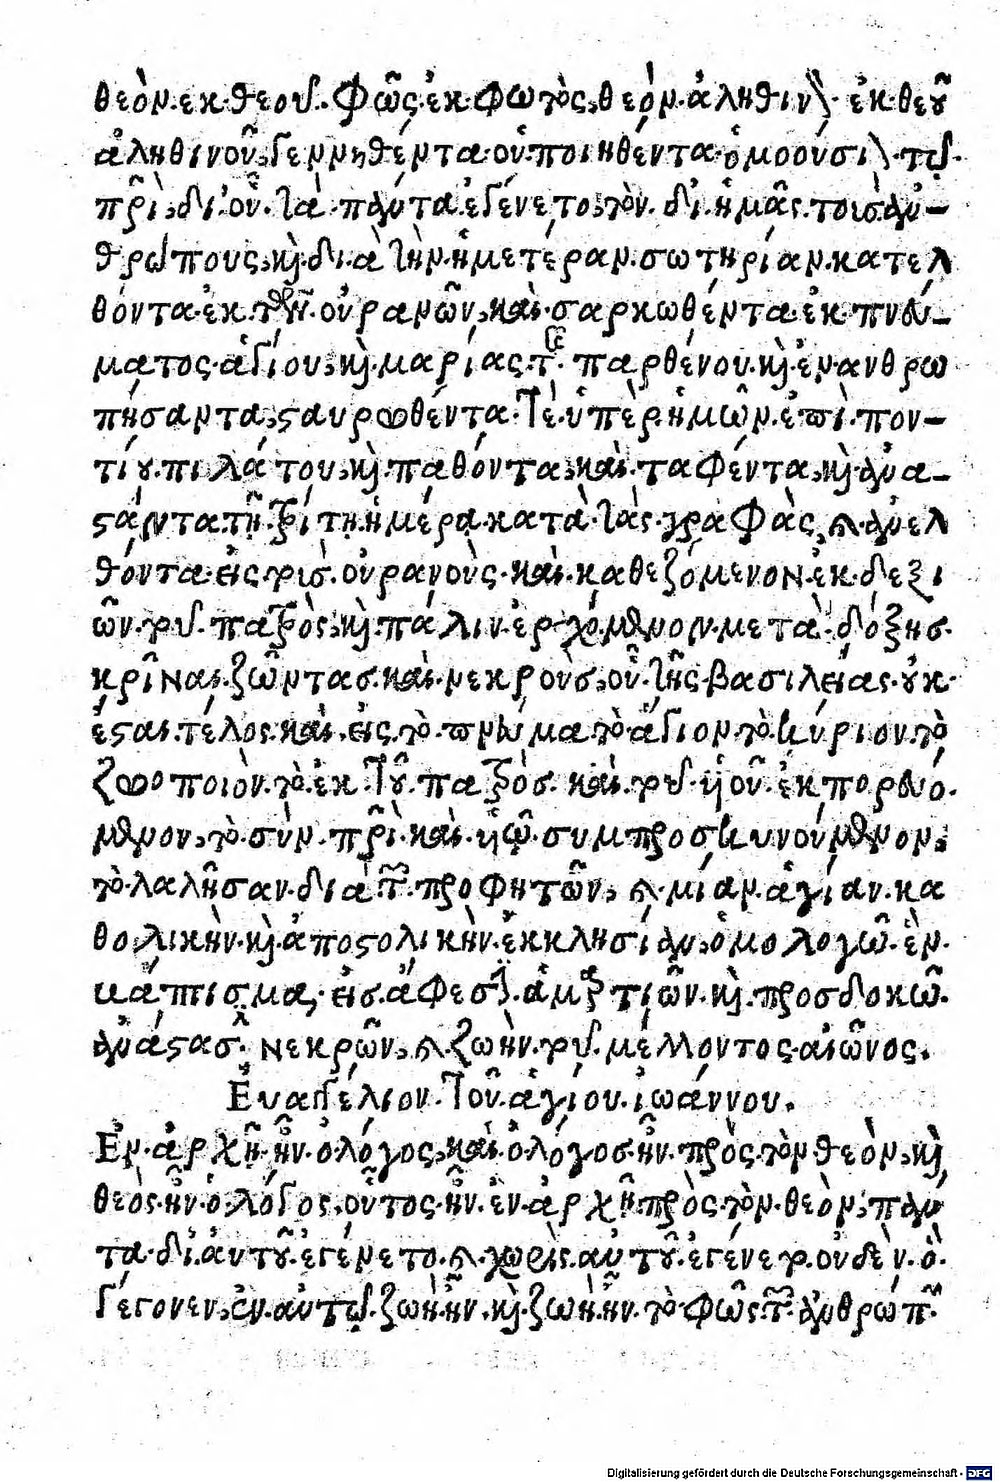 θεὸν.εκ.θεου.Φῶς.ἐκ.φωτὸς,θεὸν.ἀληθινὸν.ἐκ.θεοῦ
ἀληθινοῦ,γεννηθέντα.οὐ.ποιηθέντα.ὁμοούσιον.τῷ.
πρὶ,δι.οὗ.τὰ.πάντα.ἐγένετο,τὸν.δι.ἡμᾶς.τοὺσ.ἀν-
θρώπους,καὶ.διὰ.τὴν.ἡμετέραν.σωτηρίαν.κατελ
θόντα.ἐκ.τῶν.οὐρανῶν,καὶ.σαρκωθέντα.ἐκ.πνεύ-
ματος.ἁγίου,καὶ.μαρίας.τῆς.παρθένου.καὶ.ἐν.ανθρω
πήσαντα,σταυρωθέντα.τὲ.ὑπὲρ.ἡμῶν.ἐπὶ.πον-
τίου.πιλάτου,καὶ.παθόντα,καὶ.ταφέντα,καὶ.ἀνα-
στάντα.τῇ.τρίτῃ.ἡμέρᾳ.κατὰ.τὰς.γραφὰς,καὶ.ἀνελ
θόντα.εἰς.τοὺς.οὐρανοὺς.καὶ.καθεζόμενον.ἐκ.δεξι
ῶν.τοῦ.πατρὸς,καὶ.πάλιν.ἐρχόμενον.μετὰ.δόξησ.
κρῖναι.ζῶντασ.καὶ.νεκροὺσ,οὗ.τῆς.βασιλείας.οὐκ.
ἔσται.τέλος.καὶ.εἰς.τὸ.πνεύμα.τὸ.ἅγιον.τὸ.κύριον.τὸ
ζωοποιὸν.τὸ.ἐκ.τοῦ.πατρὸσ.καὶ.τοῦ.ὑοῦ.ἐκπορευό.
μενον,τὸ.σὺν.πρὶ.καὶ.ὑῷ.συμπροσκυνούμενον,
τὸ.λαλῆσαν.διὰ.τῶν.προφητῶν,καὶ.μίαν.ἁγίαν.κα
θολικὴν.καὶ.ἀποστολικὴν.ἐκκλησίαν,ὁμολογῶ.ἓν.
βάπτισμα.εἰσ.ἄφεσιν.ἁμαρτιῶν.καὶ.προσδοκῶ.
ἀνάστασιν.νεκρῶν,καὶ.ζωὴν.τοῦ.μέλλοντος.αἰῶνος.
Ἐυαγγέλιον.τοῦ.ἁγίου.ἰωάννου.
Ἐν.ἀρχῇ.ἦν.ὁ.λόγος,καὶ.ὁ.λόγοσ.ἦν.πρὸς.τὸν.θεὸν,καὶ
θεὸς.ἦν.ὁ.λόγος,οὗτος.ἦν.ἐν.ἀρχῇ.πρὸς.τὸν.θεὸν,πάν
τα.δι.ἀυτοῦ.ἐγένετο.καὶ.χωρὶς.αὐτοῦ.ἐγένετο.οὐδὲν.ὃ.
γέγονεν,ἐν.αὐτῷ.ζωὴ.ἦν.καὶ.ζωὴ.ἦν.τὸ.φῶς.τῶν.ἀνθρώπων
Digitalisierung gefördert durch die Deutsche Forschungsgemeinschaft - DFG